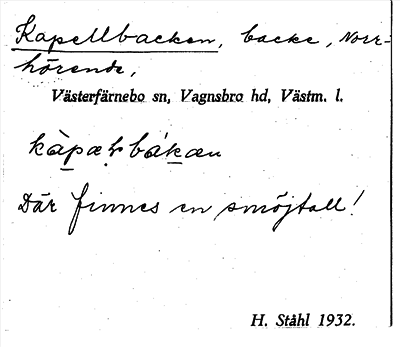 Kapellbacken, backe, Norr-
hörende,
Västerfärnebo sn, Vagnsbro hd, Västm. l.
kàpæḷbákæn
Där finnes en smöjtall!
H. Ståhl 1932.